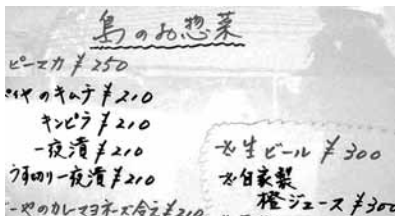 島のお惣菜
ピーマカ ¥250
イヤのキムチ ¥210
キンピラ ¥210
一夜漬 ¥210
切り一夜漬 ¥210
ーやのカレーマヨネーズ合え ¥210
生ビール ¥300
自家製
橙ジュース ¥300